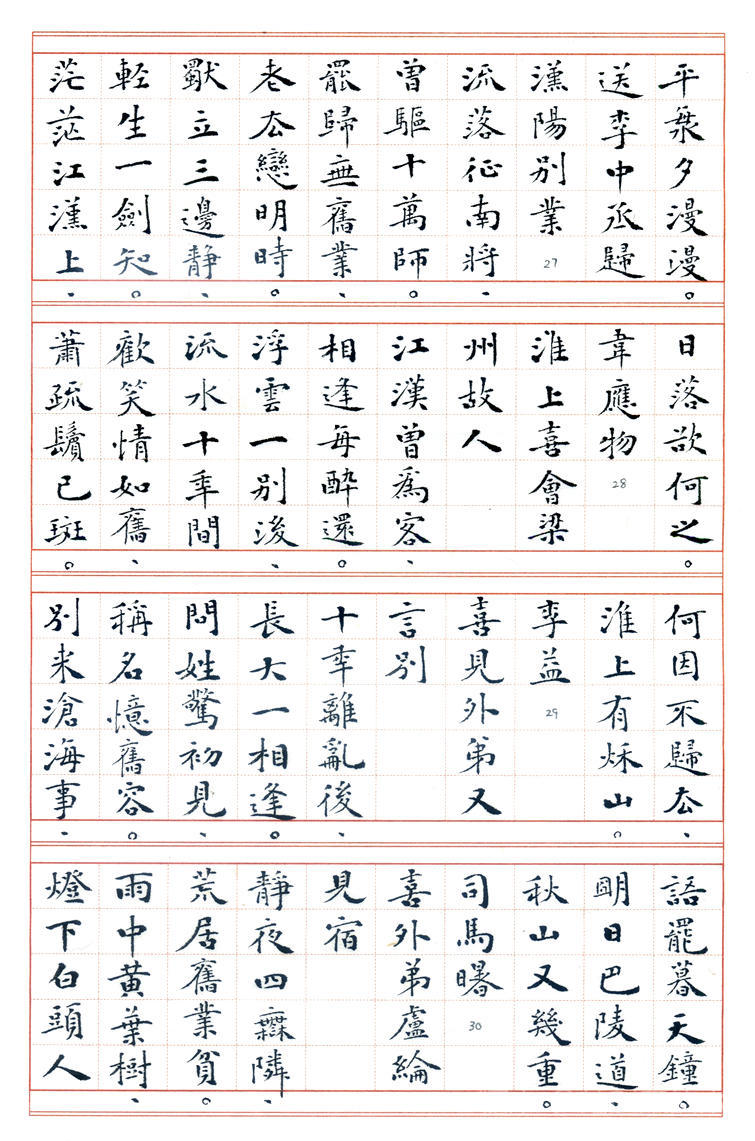 平衆夕漫漫。
送李中丞歸
漢陽別業 27
流落征南將、
曾驅十萬師。
罷歸無舊業、
老去戀明時。
獨立三邊靜、
輕生一劍知。
茫茫江漢上、
日落欲何之。
韋應物 28
淮上喜會梁
州故人
江漢曾爲客、
相逢每醉還。
浮雲一別後、
流水十年間。
歡笑情如舊、
蕭疏鬢已斑。
何因不歸去、
淮上有秋山。
李益 29
喜見外弟又
言別
十年離亂後、
長大一相逢。
問姓驚初見、
稱名憶舊容。
別來滄海事、
語罷暮天鐘。
明日巴陵道、
秋山又幾重。
司馬曙 30
喜外弟盧綸
見宿
靜夜四無隣、
荒居舊業貧。
雨中黃葉樹、
燈下白頭人